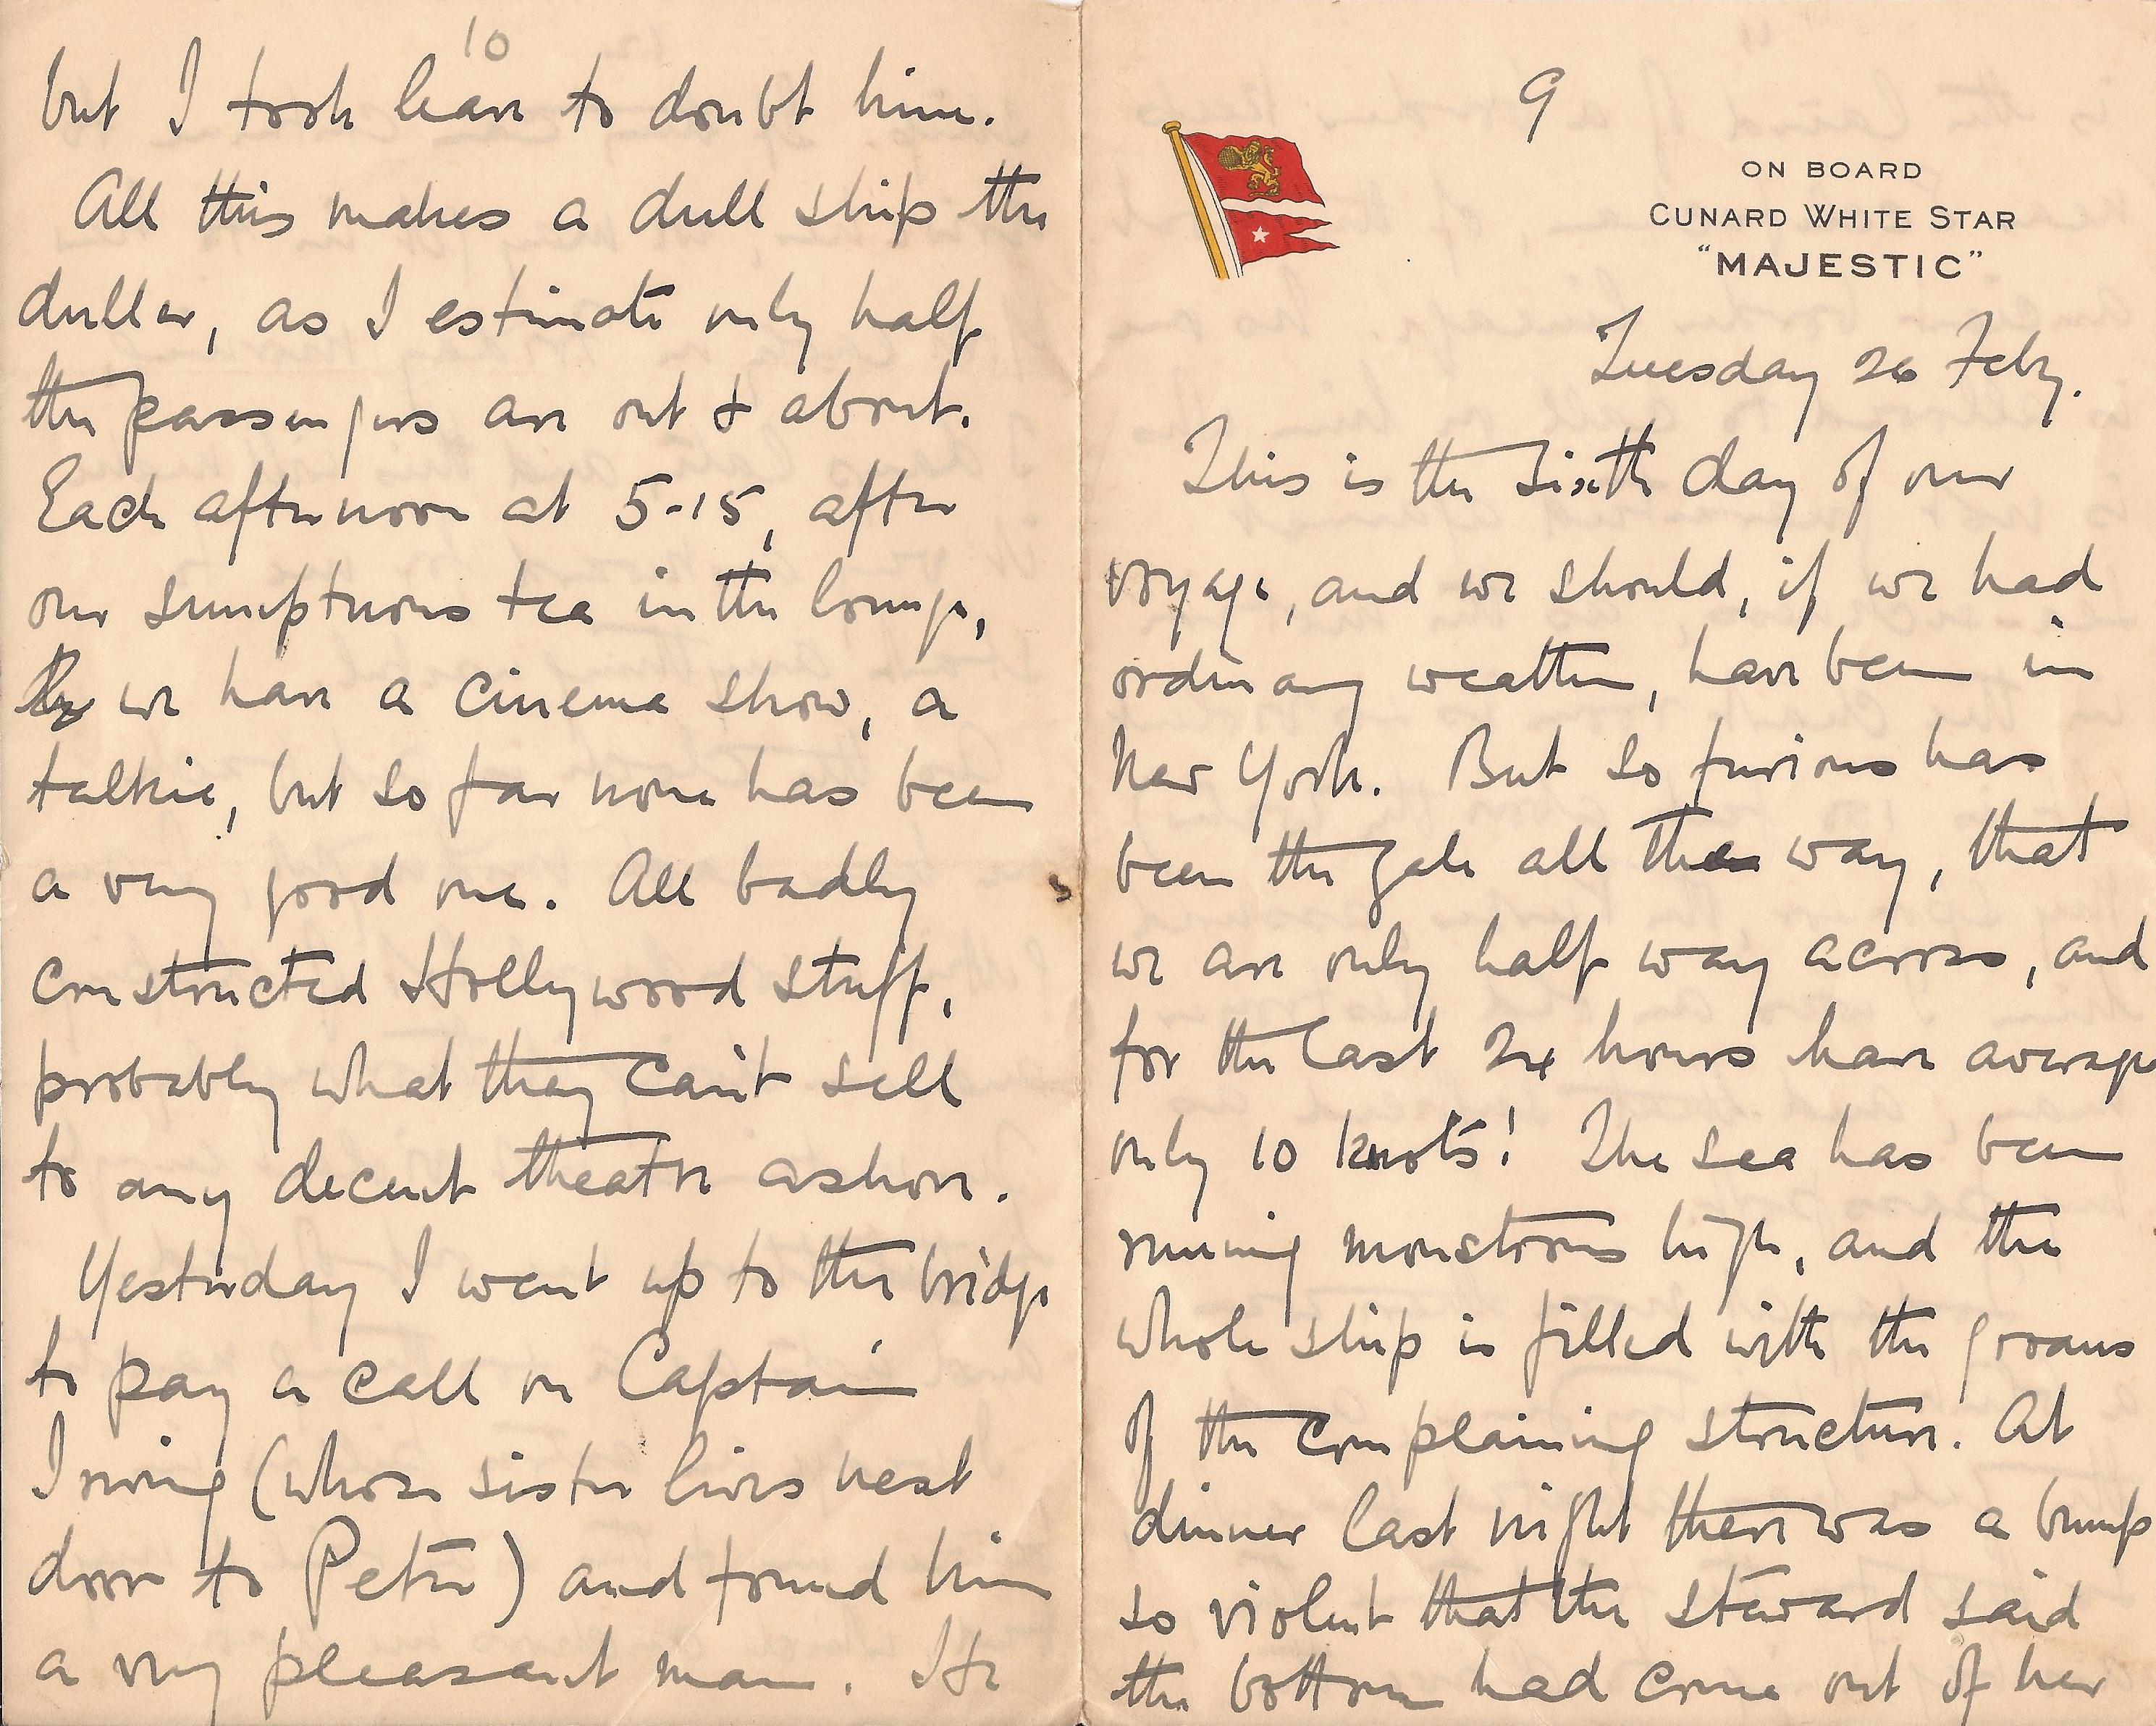 9
ON BOARD
CUNARD WHITE STAR
"MAJESTIC"
Tuesday 26 Feby.
This is the sixth day of our
voyage, and we should, if we had
ordinary weather, have been in
New York. But so furious has
been the gale all the way, that
we are only half way across, and
for the last 24 hours have average
only 10 knots! The sea has been
running monstrous high, and the
whole ship is filled with the groans
of the complaining structure. At
dinner last night there was a bump
so violent that the steward said
the bottom had come out of her
10
but I took leave to doubt him.
All this makes a dull ship the
duller, as I estimate only half
the passengers are out & about.
Each afternoon at 5-15, after
our sumptuous tea in the lounge,
we have a cinema show, a
talkie, but so far none has been
a very good one. All badly
constructed Hollywood stuff,
probably what they can't sell
to any decent theatre ashore.
Yesterday I went up to the bridge
to pay a call on Captain
Irving (whose sister lives next
door to Peter) and found him
a very pleasant man. He